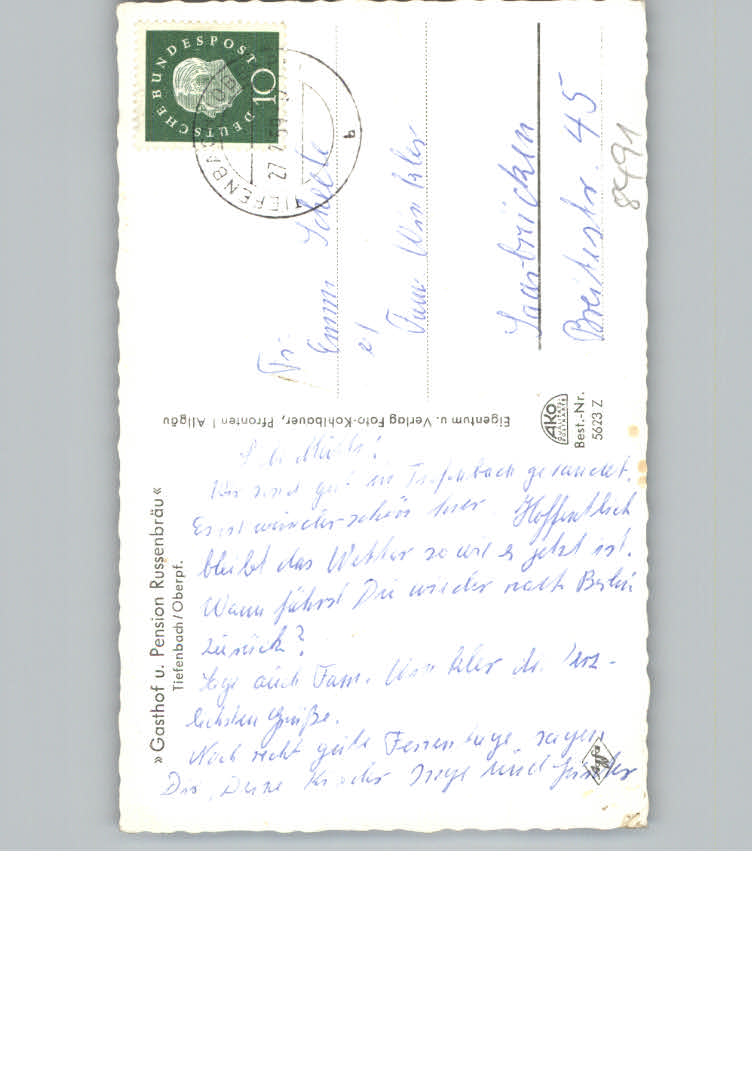 »Gasthof u. Pension Russenbräu«
Tiefenbach/Oberpf.
Wir sind gut in Tiefenbach gelandet.
Es ist wunderschön hier. Hoffentlich
bleibt das Wetter so wie es jetzt ist.
Wann fährst Du wieder nach Berlin
zurück?
Sage auch Fam. Winkler die herz-
lichsten Grüße.
Noch recht gute Ferientage sagen
Dir, Deine Kinder Inge und Günter
Eigentum u. Verlag Foto-Kohlbauer, Pfronten i Allgäu
AKO
Best.-Nr.
5623 Z
Agfa
DEUTSCHE BUNDESPOST
10
TIEFENBACH
27.7.59
b
Fr.
Emmi Scheele
Fam. Winkler
Saarbrücken
Breitestr. 45
8491